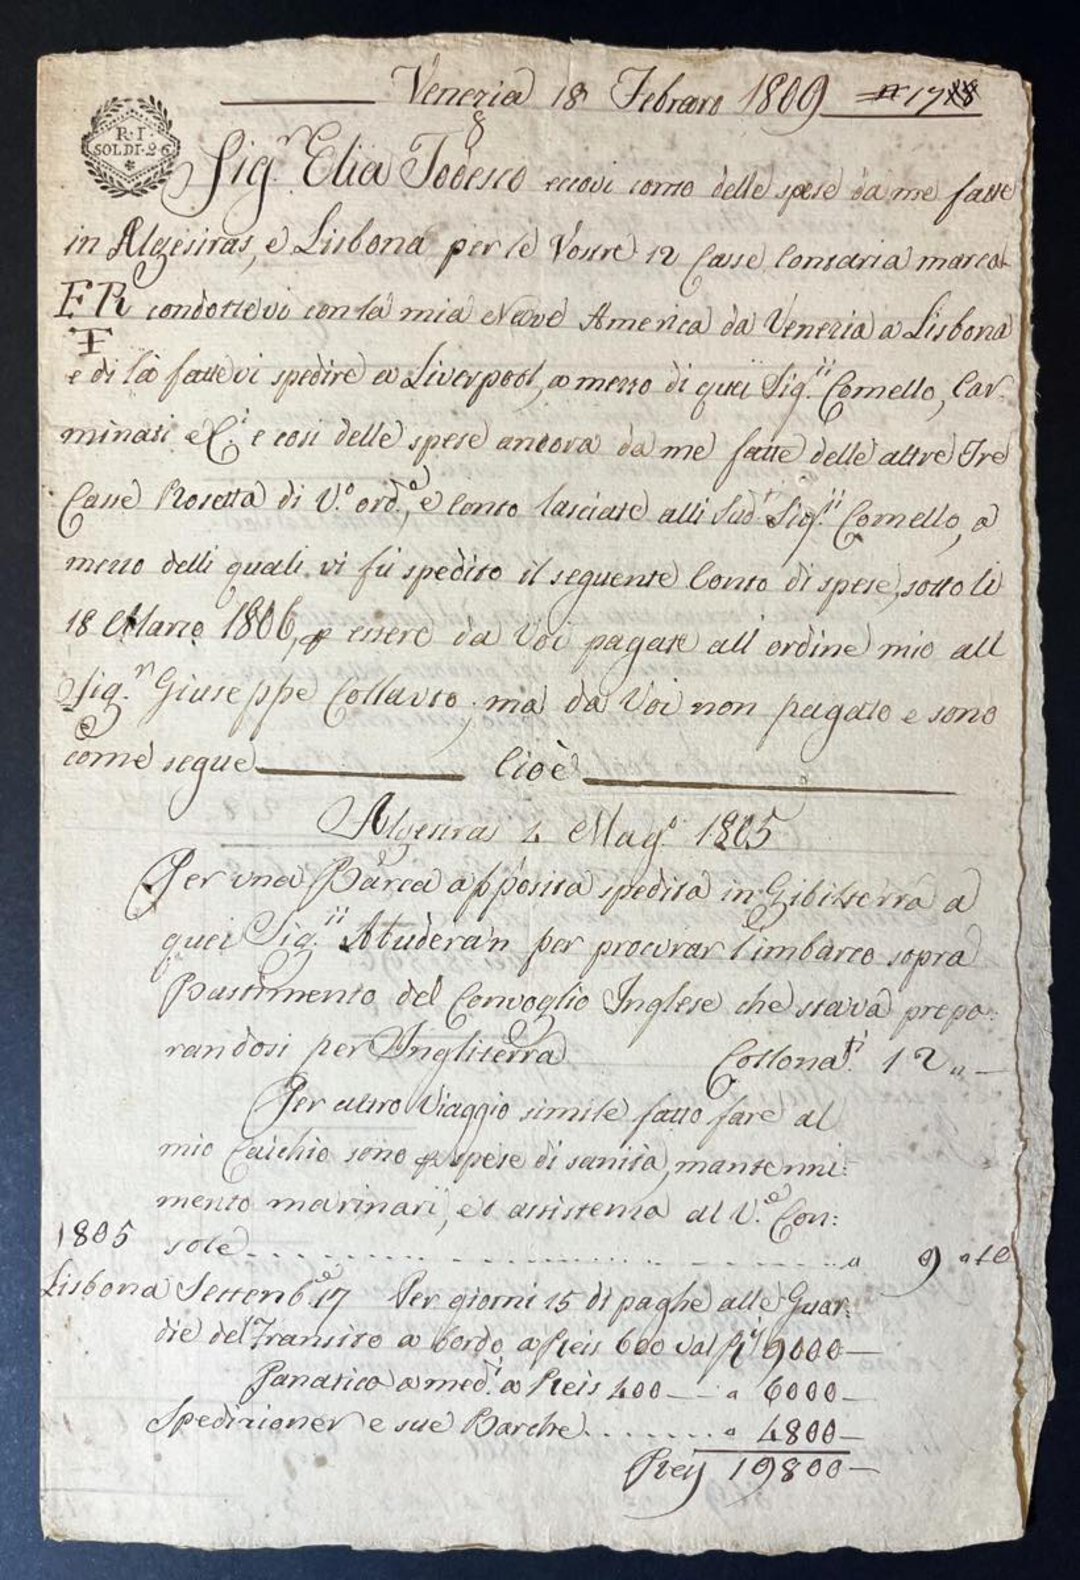 Venezia 18 Febraro 1809 = n° 17
8
R. I.
SOLDI. 26
Sig.r Elia Todesco eccovi conto delle spese da me fatte
in Algesiras, e Lisbona per le Vostre 12 Casse Contaria marca
FR condottevi con la mia Nave America da Venezia a Lisbona
T
e di la fattevi spedire a Liverpool, a mezzo di quei Sig.ii Comello, Car-
minati e C.i e cosi delle spese ancora da me fatte delle altre Tre
Casse Rosetta di V.o ord.e, e conto lasciate alli Sud.ti Sig.ii Comello, a
mezzo delli quali vi fù spedito il seguente Conto di spese, sotto li
18 Marzo 1806, p essere da Voi pagate all ordine mio all
Sig.r Giuseppe Collavto, ma da Voi non pagato e sono
come segue Cioè
Algesiras 4 Mag.o 1805
Per una Barca apposita spedita in Gibilterra a
quei Sig.ii per procurar l'imbarco sopra
Bastimento del Convoglio Inglese che stava prepa:
randosi per Ingliterra Collona.ti 12 „ —
Per altro Viaggio simile fatto fare al
mio Caichio sono p spese di sanità, mantenni:
mento marinari, et assistenza al V.e Con:
sole . . . . . . . . . . . . " 9 " 10
1805
Lisbona Settenb.e 17 Per giorni 15 di paghe alle Guar:
die del Transito a bordo a Reis 600 val R.s 9000 —
Panatico a med.i a Reis 400 — " 6000 —
Spedizioner e sue Barche . . . . . . . " 4800 —
Reis 19800 —